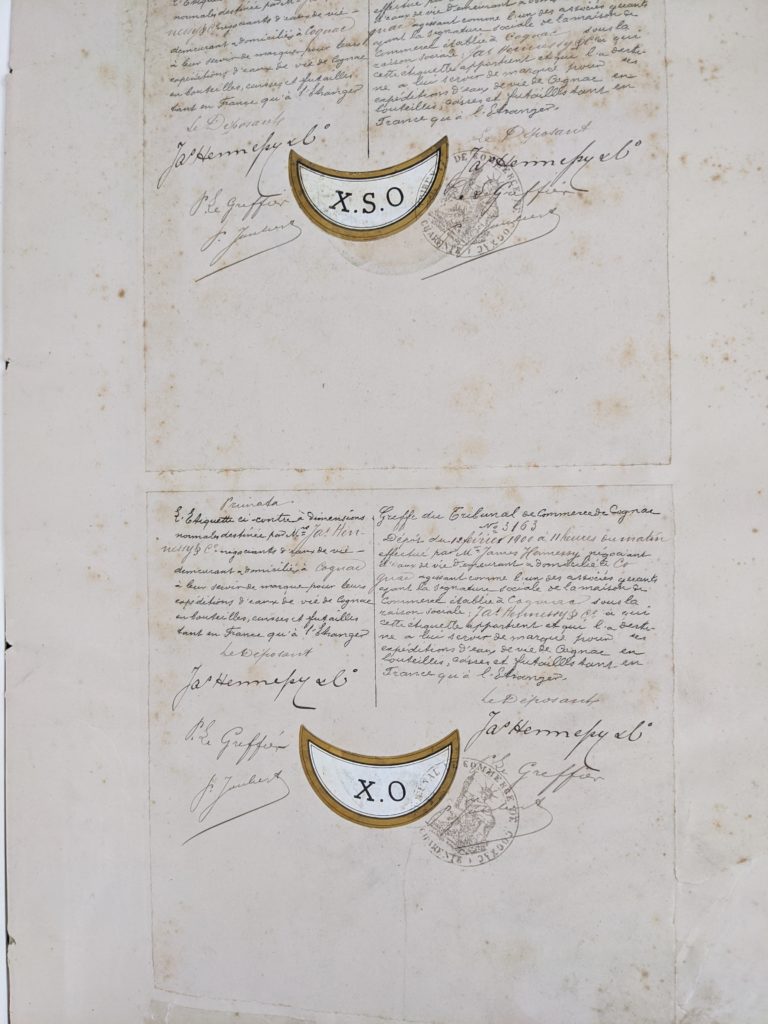 normales destinée par Mrs Jas Hen-
nessy & Co négociants d'eaux de vie-
demeurant & domiciliés à Cognac
à leur servir de marque pour leurs
expéditions d'eaux de vie de Cognac
en bouteilles, caisses et futailles
tant en France qu'à l'Etranger
Le Déposant
Jas Hennessy & Co
P. Le Greffier
P. Joubert
effectué par
d'eaux de vie demeurant à
gnac agissant comme l'un des associés gérants
ayant la signature sociale de la maison de
Commerce établie à Cognac sous la
raison sociale: Jas Hennessy & Co à qui
cette étiquette appartient et qui l'a desti-
née à lui servir de marque pour ses
expéditions d'eaux de vie de Cognac en
bouteilles, caisses et futailles tant en
France qu'à l'Etranger.
Le Déposant
Jas Hennessy & Co
Greffier
X.S.O
DE COMMERCE DE COGNAC
CHARENTE
L'Etiquette ci contre à dimensions
normales destinée par Mrs Jas Hen-
nessy & Co négociants d'eaux de vie-
demeurant & domiciliés à Cognac
à leur servir de marque pour leurs
expéditions d'eaux de vie de Cognac
en bouteilles, caisses et futailles
tant en France qu'à l'Etranger
Le Déposant
Jas Hennessy & Co
P. Le Greffier
P. Joubert
Greffe du Tribunal de Commerce de Cognac
No 3163
Dépôt du 12 février 1900 à 11 heures du matin
effectué par Mr James Hennessy négociant
d'eaux de vie demeurant & domicilié à Co
gnac agissant comme l'un des associés gérants
ayant la signature sociale de la maison de
Commerce établie à Cognac sous la
raison sociale: Jas Hennessy & Co à qui
cette étiquette appartient et qui l'a desti-
née à lui servir de marque pour ses
expéditions d'eaux de vie de Cognac en
bouteilles, caisses et futailles tant en
France qu'à l'Etranger.
Le Déposant
Jas Hennessy & Co
Le Greffier
X.O
TRIBUNAL DE COMMERCE DE COGNAC
CHARENTE